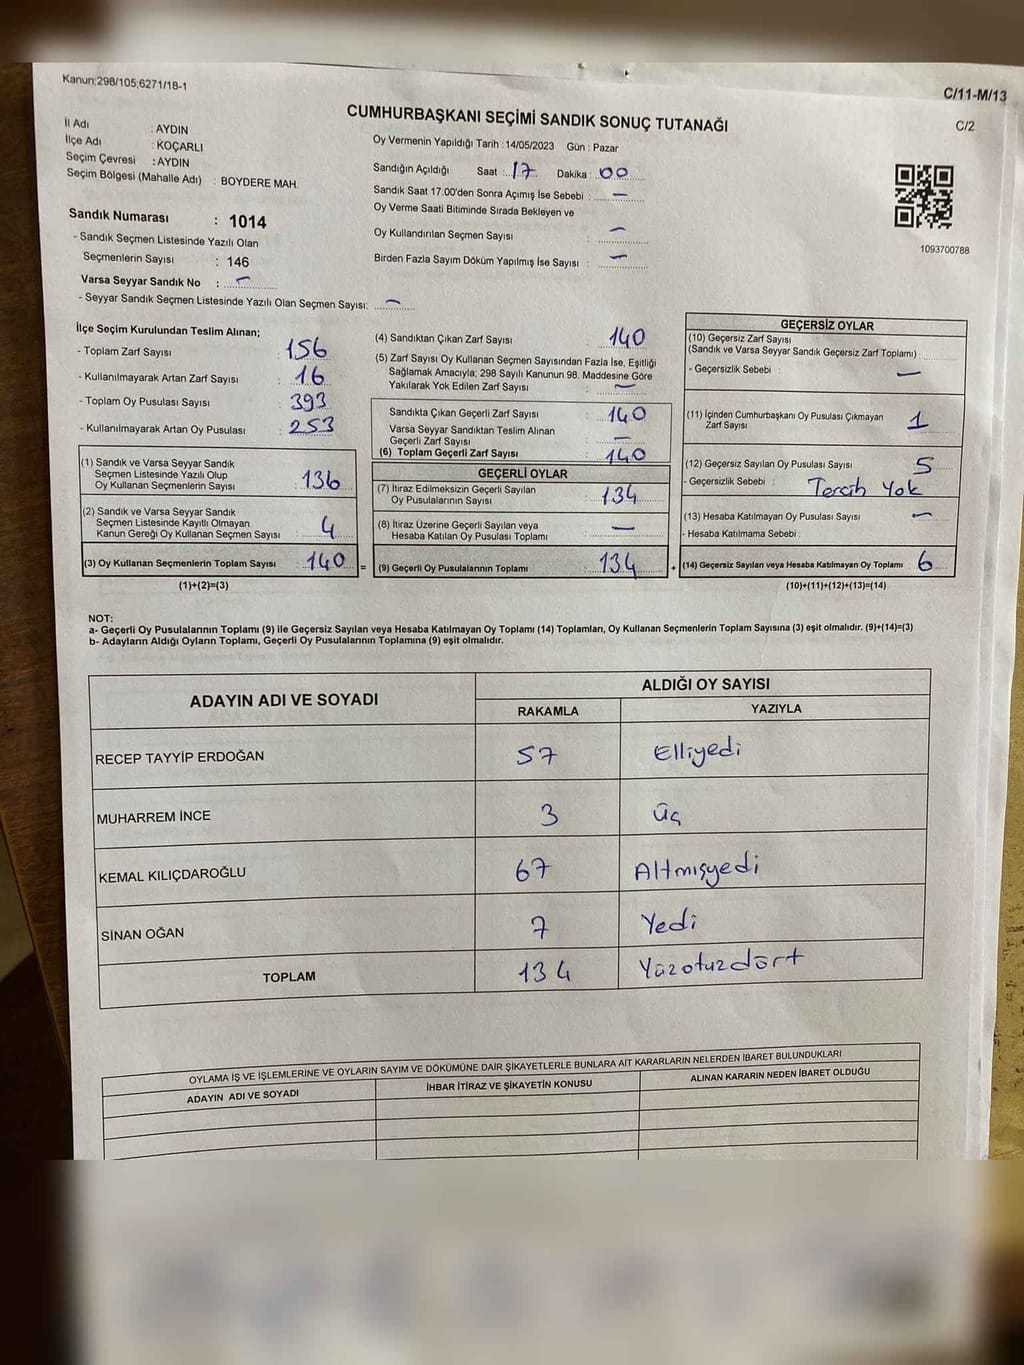 Kanun:298/105;6271/18-1
C/11-M/13
CUMHURBAŞKANI SEÇİMİ SANDIK SONUÇ TUTANAĞI
C/2
İl Adı : AYDIN
İlçe Adı : KOÇARLI
Seçim Çevresi : AYDIN
Seçim Bölgesi (Mahalle Adı) : BOYDERE MAH.
Oy Vermenin Yapıldığı Tarih :14/05/2023 Gün : Pazar
Sandığın Açıldığı Saat : 17 Dakika : 00
Sandık Saat 17:00'den Sonra Açımış İse Sebebi : —
Oy Verme Saati Bitiminde Sırada Bekleyen ve
Oy Kullandırılan Seçmen Sayısı : —
Birden Fazla Sayım Döküm Yapılmış İse Sayısı : —
1093700788
Sandık Numarası : 1014
- Sandık Seçmen Listesinde Yazılı Olan
Seçmenlerin Sayısı : 146
Varsa Seyyar Sandık No : —
- Seyyar Sandık Seçmen Listesinde Yazılı Olan Seçmen Sayısı: —
İlçe Seçim Kurulundan Teslim Alınan;
- Toplam Zarf Sayısı : 156
- Kullanılmayarak Artan Zarf Sayısı : 16
- Toplam Oy Pusulası Sayısı : 393
- Kullanılmayarak Artan Oy Pusulası : 253
(1) Sandık ve Varsa Seyyar Sandık
Seçmen Listesinde Yazılı Olup
Oy Kullanan Seçmenlerin Sayısı : 136
(2) Sandık ve Varsa Seyyar Sandık
Seçmen Listesinde Kayıtlı Olmayan
Kanun Gereği Oy Kullanan Seçmen Sayısı : 4
(3) Oy Kullanan Seçmenlerin Toplam Sayısı : 140
(1)+(2)=(3)
(4) Sandıktan Çıkan Zarf Sayısı : 140
(5) Zarf Sayısı Oy Kullanan Seçmen Sayısından Fazla İse, Eşitliği
Sağlamak Amacıyla; 298 Sayılı Kanunun 98. Maddesine Göre
Yakılarak Yok Edilen Zarf Sayısı : —
Sandıkta Çıkan Geçerli Zarf Sayısı : 140
Varsa Seyyar Sandıktan Teslim Alınan
Geçerli Zarf Sayısı : —
(6) Toplam Geçerli Zarf Sayısı : 140
GEÇERLİ OYLAR
(7) İtiraz Edilmeksizin Geçerli Sayılan
Oy Pusulalarının Sayısı : 134
(8) İtiraz Üzerine Geçerli Sayılan veya
Hesaba Katılan Oy Pusulası Toplamı : —
= (9) Geçerli Oy Pusulalarının Toplamı : 134 +
GEÇERSİZ OYLAR
(10) Geçersiz Zarf Sayısı
(Sandık ve Varsa Seyyar Sandık Geçersiz Zarf Toplamı) :
- Geçersizlik Sebebi : —
(11) İçinden Cumhurbaşkanı Oy Pusulası Çıkmayan
Zarf Sayısı : 1
(12) Geçersiz Sayılan Oy Pusulası Sayısı : 5
- Geçersizlik Sebebi : Tercih Yok
(13) Hesaba Katılmayan Oy Pusulası Sayısı : —
- Hesaba Katılmama Sebebi :
(14) Geçersiz Sayılan veya Hesaba Katılmayan Oy Toplamı : 6
(10)+(11)+(12)+(13)=(14)
NOT:
a- Geçerli Oy Pusulalarının Toplamı (9) ile Geçersiz Sayılan veya Hesaba Katılmayan Oy Toplamı (14) Toplamları, Oy Kullanan Seçmenlerin Toplam Sayısına (3) eşit olmalıdır. (9)+(14)=(3)
b- Adayların Aldığı Oyların Toplamı, Geçerli Oy Pusulalarının Toplamına (9) eşit olmalıdır.
ADAYIN ADI VE SOYADI
ALDIĞI OY SAYISI
RAKAMLA YAZIYLA
RECEP TAYYİP ERDOĞAN 57 Elliyedi
MUHARREM İNCE 3 Üç
KEMAL KILIÇDAROĞLU 67 Altmışyedi
SİNAN OĞAN 7 Yedi
TOPLAM 134 Yüzotuzdört
OYLAMA İŞ VE İŞLEMLERİNE VE OYLARIN SAYIM VE DÖKÜMÜNE DAİR ŞİKAYETLERLE BUNLARA AİT KARARLARIN NELERDEN İBARET BULUNDUKLARI
ADAYIN ADI VE SOYADI İHBAR İTİRAZ VE ŞİKAYETİN KONUSU ALINAN KARARIN NEDEN İBARET OLDUĞU